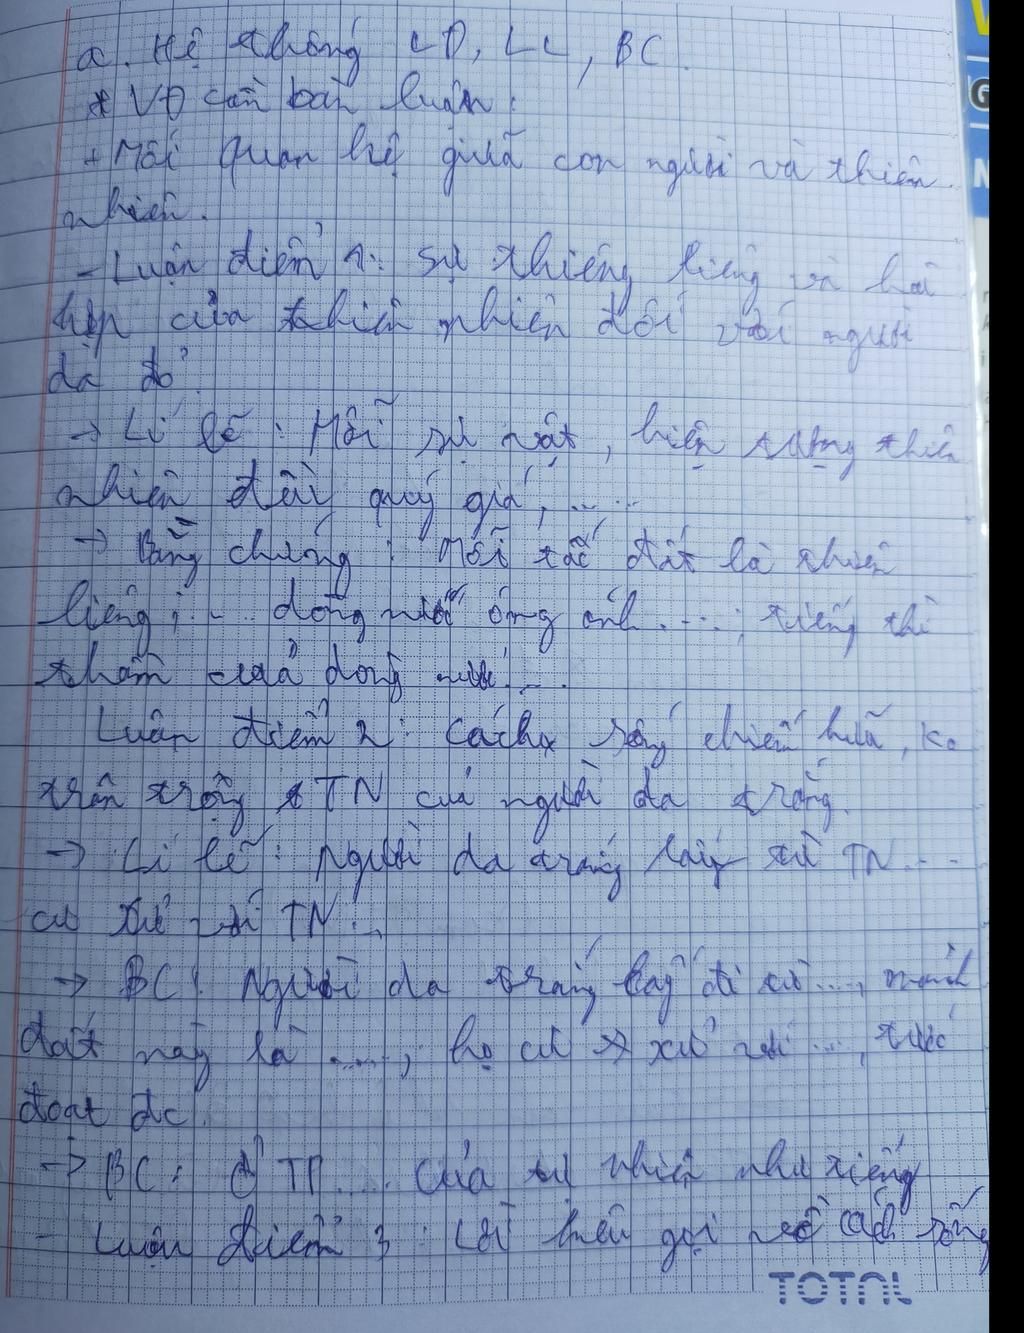 a. Hệ thống LĐ, LL, BC.
* VĐ cần bàn luận:
+ Mối quan hệ giữa con người và thiên
nhiên.
- Luận điểm 1: Sự thiêng liêng và hài
hợp của thiên nhiên đối với người
da đỏ.
→ Lí lẽ: Mỗi sự vật, hiện tượng thiên
nhiên đều quý giá, ....
→ Bằng chứng: Mỗi tấc đất là thiên
liêng; ... dòng nước óng ánh ...; tiếng thì
thầm của dòng nước ...
Luận điểm 2: Cách sống chiếm hữu, ko
trân trọng TN của người da trắng.
→ Lí lẽ: Người da trắng lấy từ TN ...
cư xử với TN ...
→ BC: Người da trắng lấy đi từ ..., mảnh
đất này là ....; họ cư xử với ..., tước
đoạt đc.
→ BC: Ở TP .... của tự nhiên như tiếng
- Luận điểm 3: Lời kêu gọi về cách sống
TOTAL
G
N